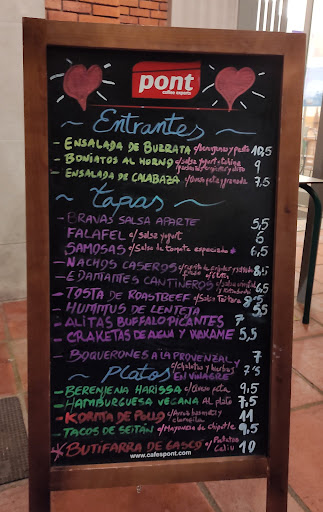 pont
coffee experts
~ Entrantes ~
- ENSALADA DE BURRATA c/berenjenas y pesto 10,5
- BONIATOS AL HORNO c/salsa yogurt 9
- ENSALADA DE CALABAZA c/queso feta y granada 7,5
~ Tapas ~
- BRAVAS SALSA APARTE 5,5
- FALAFEL c/salsa yogurt 6
- SAMOSAS c/salsa de tomate especiada 5,5
- NACHOS CASEROS 8,5
- EDAMAMES CANTINEROS 6,5
- TOSTA DE ROASTBEEF c/salsa tártara 8,5
- HUMMUS DE LENTEJA 7
- ALITAS BUFFALO PICANTES 7
- CRAKETAS DE AGUA Y WAKAME 5,5
- BOQUERONES A LA PROVENZAL 7
c/chalotas y hierbas EN VINAGRE 7,5
~ Platos ~
- BERENJENA HARISSA c/queso feta 9,5
- HAMBURGUESA VEGANA AL plato 7,5
- KORMA DE POLLO c/arroz basmati y 11
- TACOS DE SEITÁN c/mayonesa de chipotle 9,5
* BUTIFARRA DE c/Patatas Caliu 10
www.cafespont.com